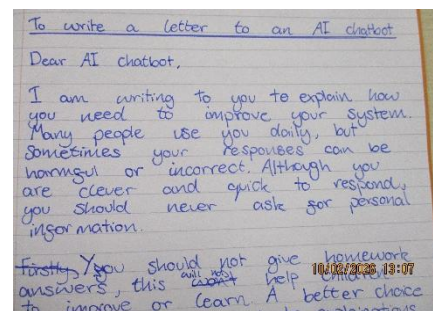 To write a letter to an AI chatbot
Dear AI chatbot,
I am writing to you to explain how
you need to improve your system.
Many people use you daily, but
sometimes your responses can be
harmful or incorrect. Although you
are clever and quick to respond,
you should never ask for personal
information.
Firstly, You should not give homework
answers, this will not help children
to improve or learn. A better choice
explanations
10/02/2026 13:07